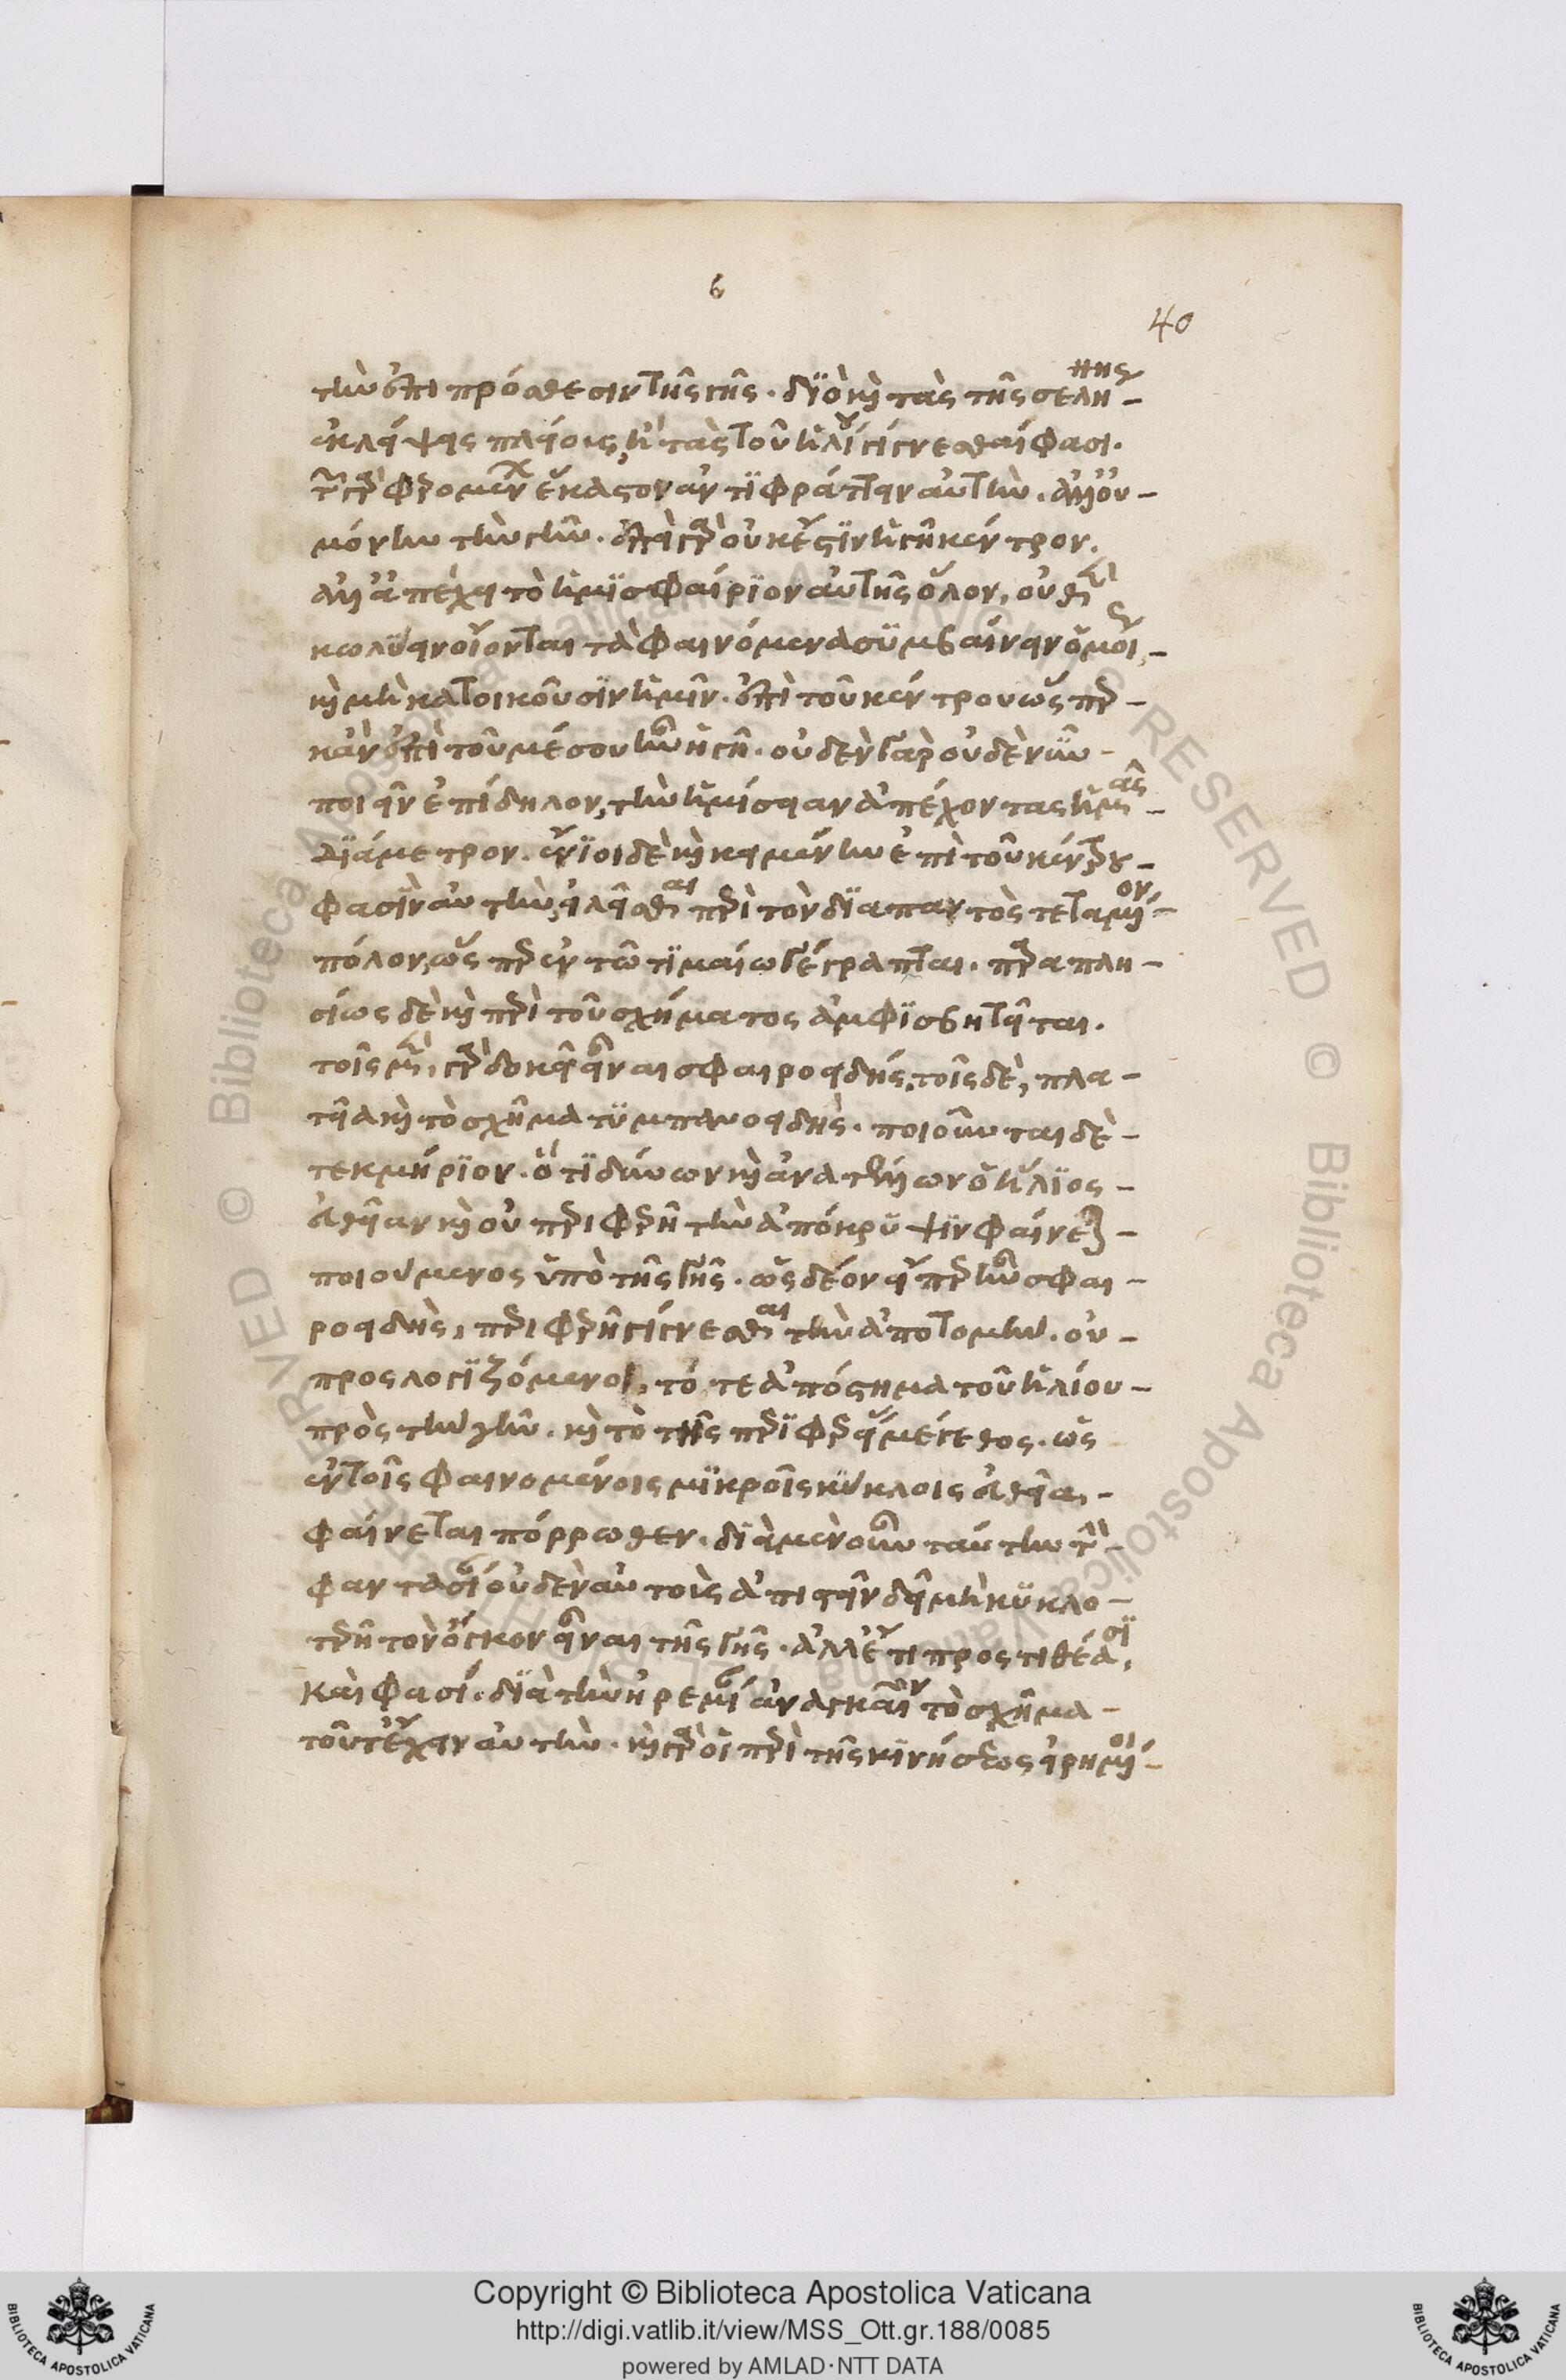 6
40
τὴν ἐπιπρόσθεσιν τῆς γῆς. διὸ καὶ τὰς τῆς σελήνης
ἐκλείψεις πλείους ἢ τὰς τοῦ ἡλίου γίγνεσθαί φασι.
τῶν γὰρ φερομένων ἕκαστον ἀντιφράττειν αὐτὴν. ἀλλ' οὐ
μόνην τὴν γῆν. ἐπεὶ γὰρ οὐκ ἔστιν ἡ γῆ κέντρον.
ἀλλ' ἀπέχει τὸ ἡμισφαίριον αὐτῆς ὅλον, οὐθὲν
κωλύειν οἴονται τὰ φαινόμενα συμβαίνειν ὁμοίως
καὶ μὴ κατοικοῦσιν ἡμῖν. ἐπὶ τοῦ κέντρου ὥσπερ
κἂν ἐπὶ τοῦ μέσου ἦν ἡ γῆ. οὐδὲν γὰρ οὐδὲ νῦν
ποιεῖν ἐπίδηλον, τὴν ἡμίσειαν ἀπέχοντας ἡμᾶς
διάμετρον. ἔνιοι δὲ καὶ κειμένην ἐπὶ τοῦ κέντρου
φασὶν αὐτὴν εἰλεῖσθαι περὶ τὸν διὰ παντὸς τεταμένον
πόλον, ὥσπερ ἐν τῷ τιμαίῳ γέγραπται. παραπλη
σίως δὲ καὶ περὶ τοῦ σχήματος ἀμφισβητεῖται.
τοῖς μὲν γὰρ δοκεῖ εἶναι σφαιροειδής, τοῖς δὲ, πλα
τεῖα καὶ τὸ σχῆμα τυμπανοειδὴς. ποιοῦνται δὲ
τεκμήριον. ὅτι δύνων καὶ ἀνατέλλων ὁ ἥλιος
εὐθεῖαν καὶ οὐ περιφερῆ τὴν ἀπόκρυψιν φαίνεται
ποιούμενος ὑπὸ τῆς γῆς. ὡς δέον εἴπερ ἦν σφαι
ροειδὴς, περιφερῆ γίγνεσθαι τὴν ἀποτομήν. οὐ
προσλογιζόμενοι, τό τε ἀπόστημα τοῦ ἡλίου
πρὸς τὴν γῆν. καὶ τὸ τῆς περιφερείας μέγεθος. ὡς
ἐν τοῖς φαινομένοις μικροῖς κύκλοις εὐθεῖα,
φαίνεται πόρρωθεν. διὰ μὲν οὖν ταύτην τὴν
φαντασίαν οὐδὲν αὐτοὶς ἀπιστεῖν δεῖ μὴ κυκλο
τερῆ τὸν ὄγκον εἶναι τῆς γῆς. ἀλλ' ἔτι προστιθέασι,
καὶ φασὶ. διὰ τὴν ἠρεμίαν ἀναγκαῖον τὸ σχῆμα
τοῦτ' ἔχειν αὐτὴν. καὶ γὰρ οἱ περὶ τῆς κινήσεως εἰρημένοι
Copyright © Biblioteca Apostolica Vaticana
http://digi.vatlib.it/view/MSS_Ott.gr.188/0085
powered by AMLAD·NTT DATA